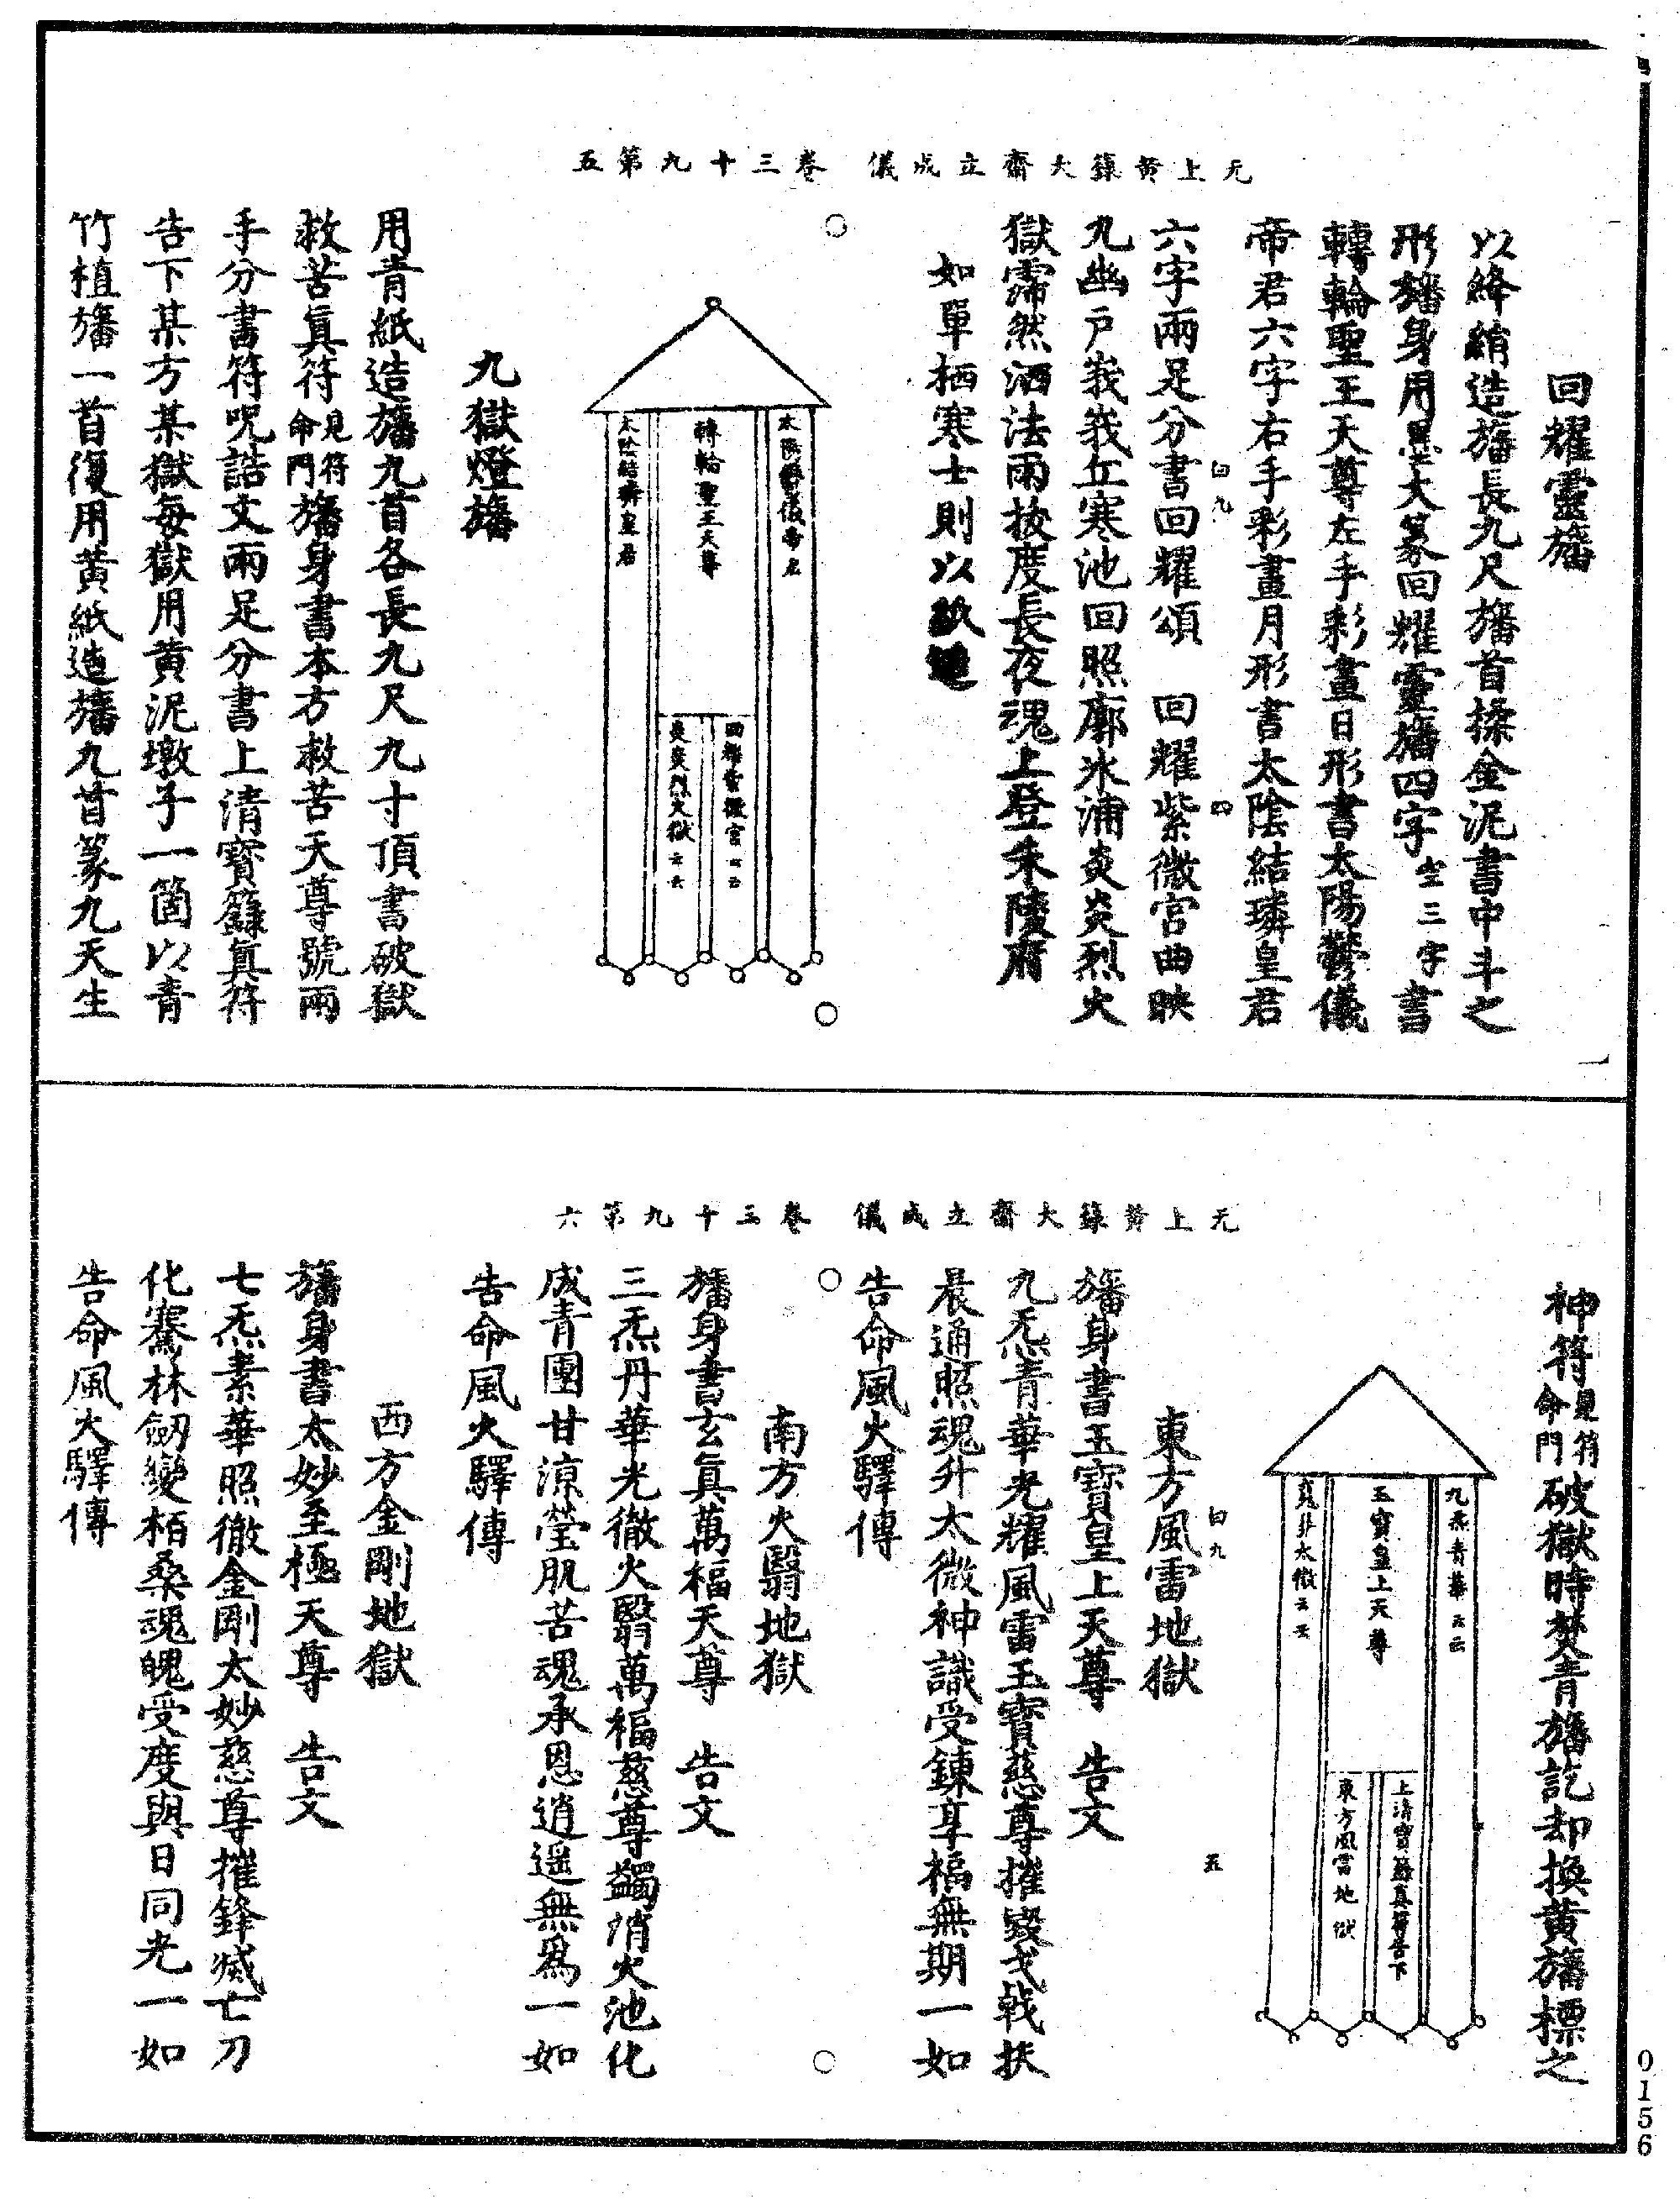 元上黃籙大齋立成儀　卷三十九第五
回耀靈旛
以絳綃造旛長九尺旛首揉金泥書中斗之
形旛身用墨大篆回耀靈旛四字空三字書
轉輪聖王天尊左手彩畫日形書太陽鬱儀
帝君六字右手彩畫月形書太陰結璘皇君
六字兩足分書回耀頌　回耀紫微宮曲映
九幽戶峩峩丘寒池回照廓氷浦炎炎烈火
獄霈然洒法雨拔度長夜魂上登朱陵府
如單栖寒士則以紙造
臼九
四
太陽鬱儀帝君
轉輪聖王天尊
太陰結璘皇君
回耀紫微宮云云
炎炎烈火獄云云
九獄燈旛
用青紙造旛九首各長九尺九寸頂書破獄
救苦眞符見符命門旛身書本方救苦天尊號兩
手分書符呪誥文兩足分書上清寶籙眞符
告下某方某獄每獄用黃泥墩子一箇以青
竹植旛一首復用黃紙造旛九首篆九天生
元上黃籙大齋立成儀　卷三十九第六
神符見符命門破獄時焚青旛訖却換黃旛標之
九炁青華云云
玉寶皇上天尊
魂升太微云云
上清寶籙眞符告下
東方風雷地獄
臼九
五
東方風雷地獄
旛身書玉寶皇上天尊　告文
九炁青華光耀風雷玉寶慈尊摧毀戈戟扶
晨通照魂升太微神識受鍊享福無期一如
告命風火驛傳
南方火翳地獄
旛身書玄眞萬福天尊　告文
三炁丹華光徹火翳萬福慈尊蠲消火池化
成青團甘涼瑩肌苦魂承恩逍遥無爲一如
告命風火驛傳
西方金剛地獄
旛身書太妙至極天尊　告文
七炁素華照徹金剛太妙慈尊摧鋒滅亡刀
化騫林劒變栢桑魂魄受度與日同光一如
告命風火驛傳
0156